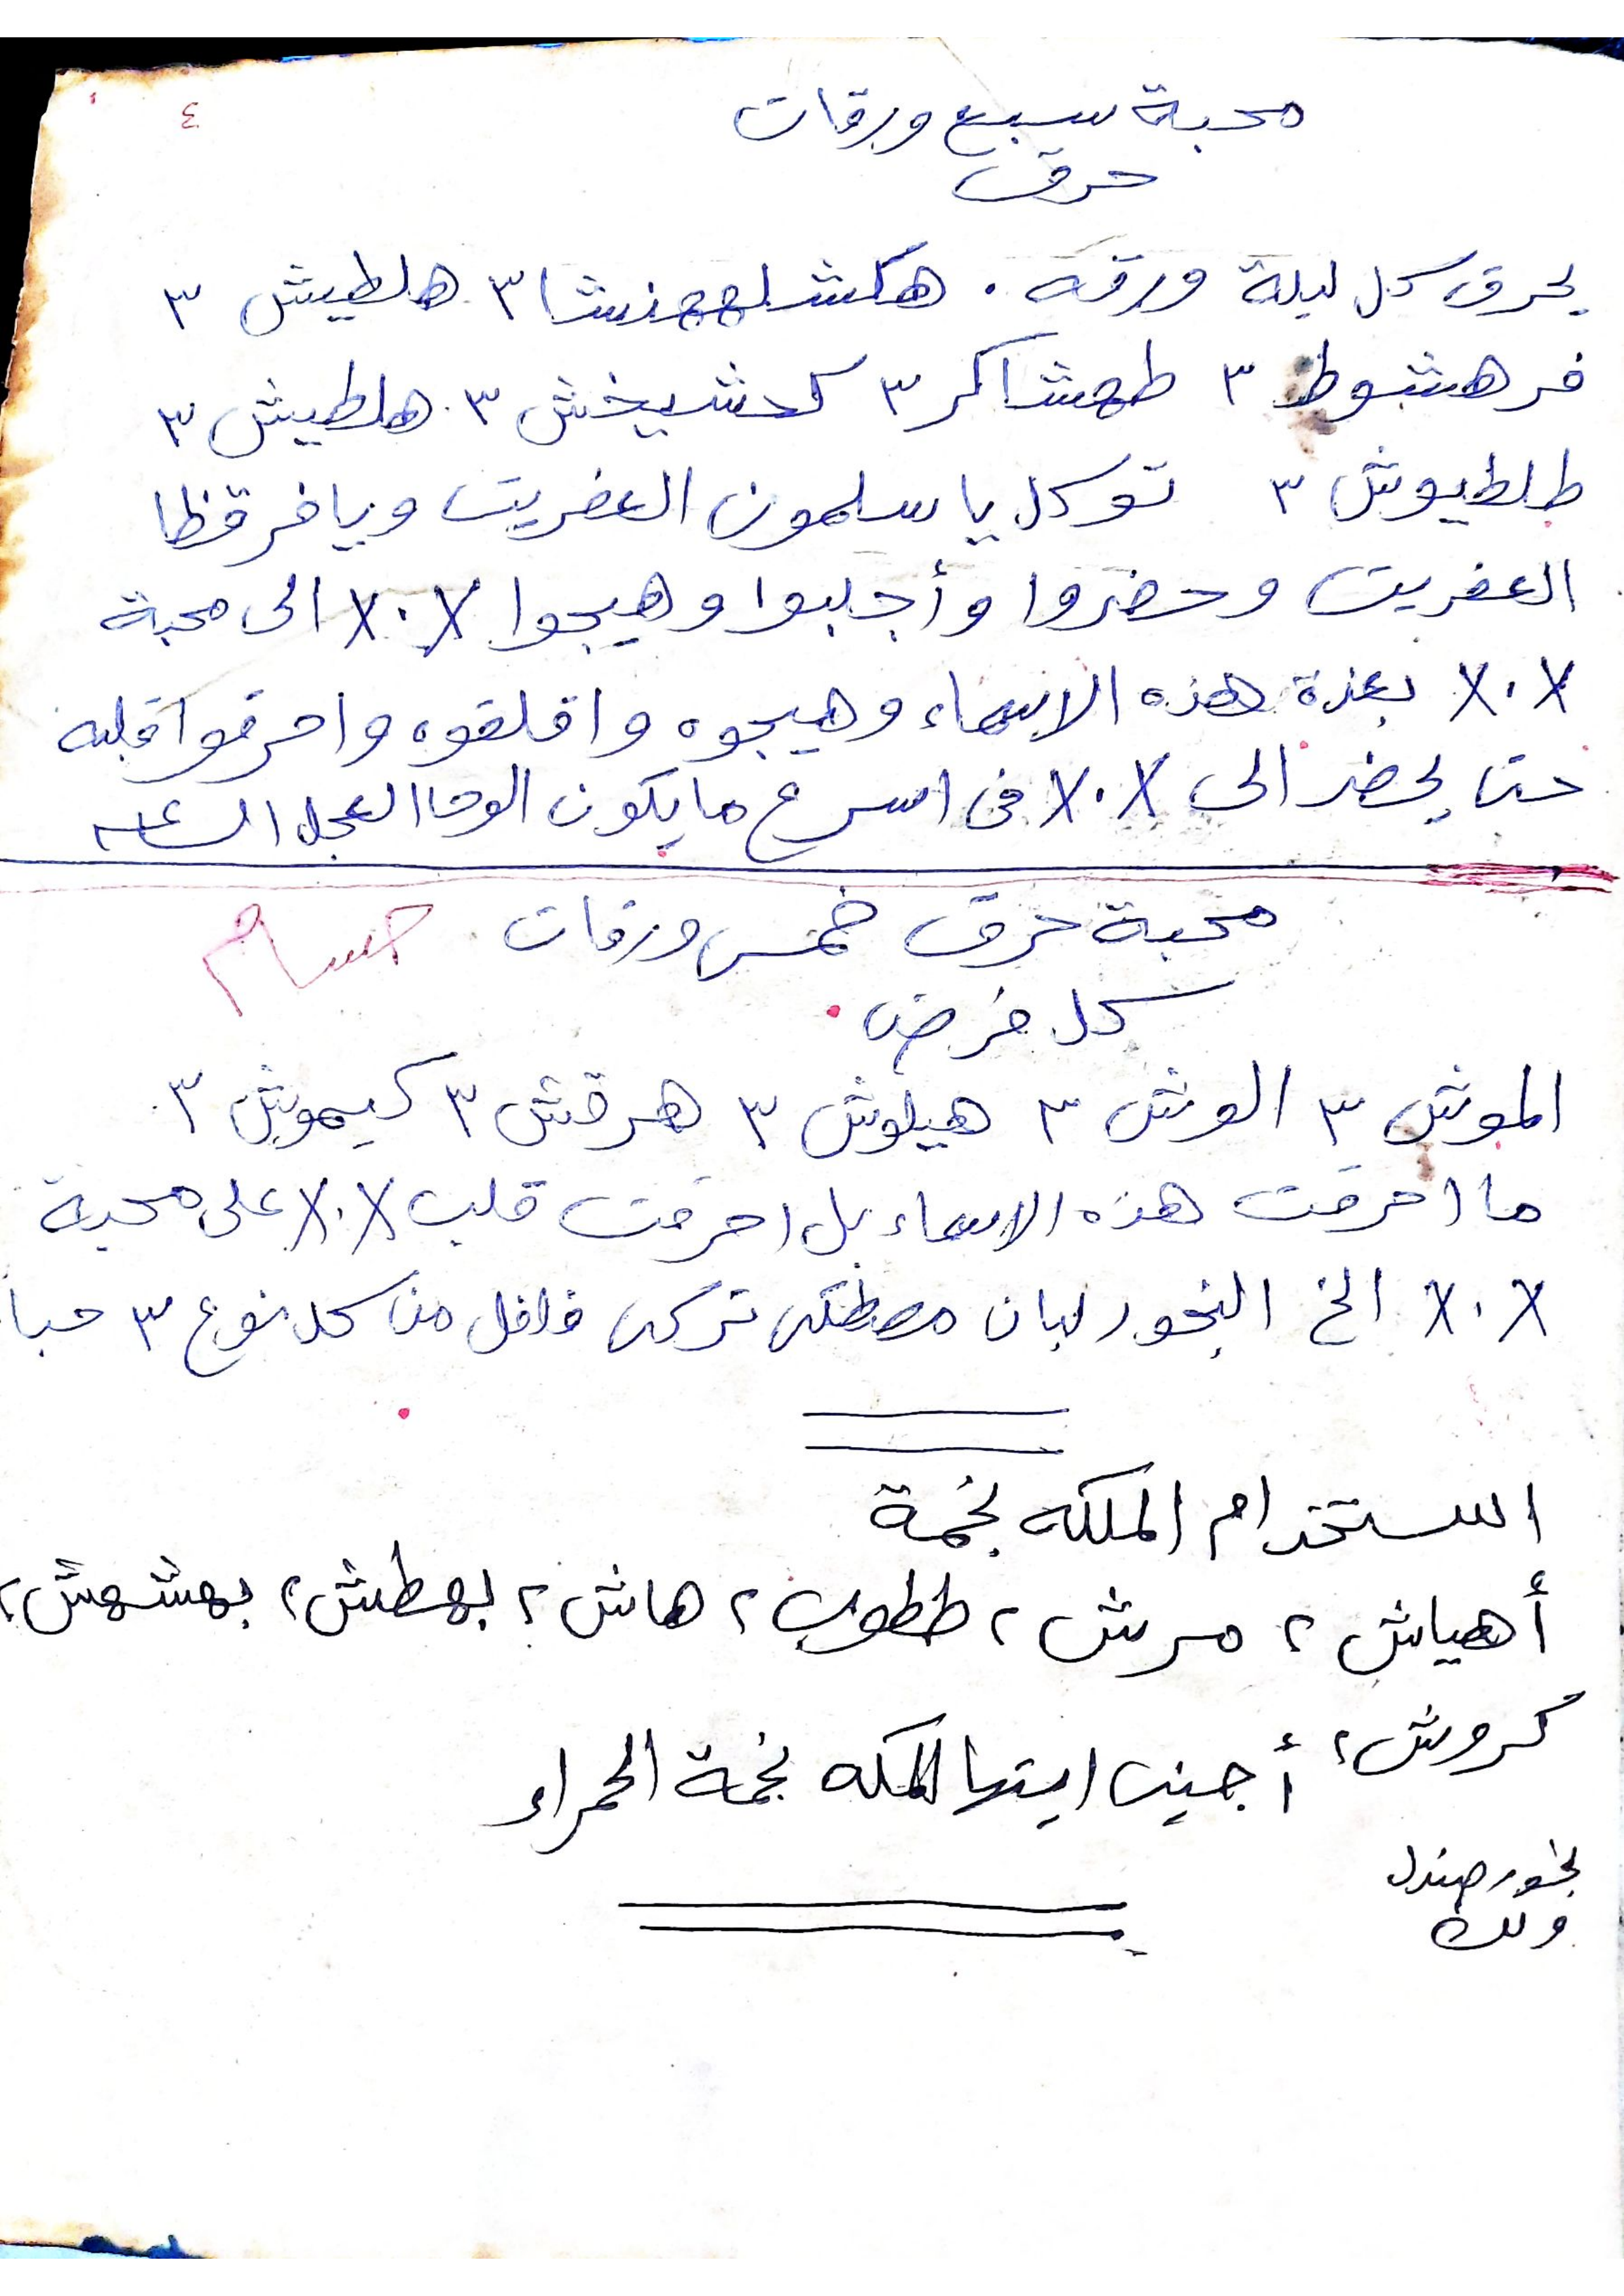 ٤
محبة سبع ورقات
حرق
يحرق كل ليلة ورقه . هكشلههنشا ٣ هلطيش ٣
فرهشوط ٣ طهشاكر ٣ كدشيخش ٣ هلطيش ٣
طلطيوش ٣ توكل يا سلمون العفريت ويا فرقظا
العفريت وحضروا وأجلبوا وهيجوا X.X الى محبة
X.X بعزة هذه الاسماء وهيجوه واقلقوه واحرقوا قلبه
حتى يحضر الى X.X فى اسرع ما يكون الوحا العجل الساعه
محبة حرق خمس ورقات حسام
كل فرض
الموش ٣ الوش ٣ هيلوش ٣ هرقش ٣ كيموش ٣
ما احرقت هذه الاسماء بل احرقت قلب X.X على محبة
X.X الخ البخور لبان مصطكى تركى فلفل من كل نوع ٣ حبا
استخدام الملكه نجمة
أهياش ٢ مرش ٢ ططوب ٢ هاش ٢ بهطش ٢ بهشهش ٢
كروش ٢ أجيبى ايتها الملكه نجمة الحمراء
بخور صندل